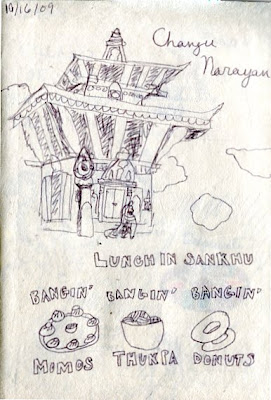 10/16/09
Changu
Narayan
LUNCH IN SANKHU
BANGIN' BANGIN' BANGIN'
MOMOS THUKPA DONUTS